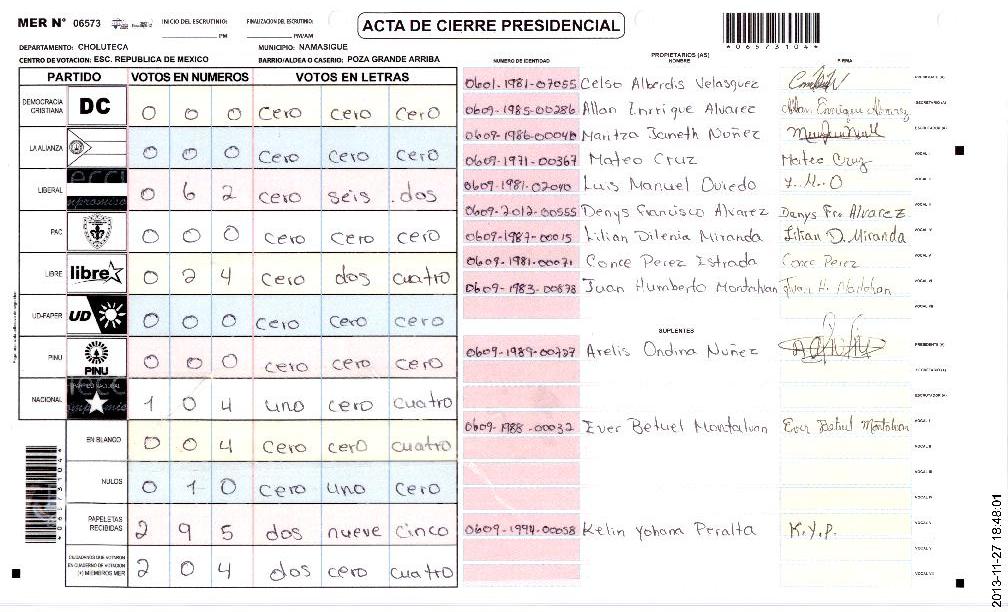 MER N° 06573 INICIO DEL ESCRUTINIO: PM FINALIZACION DEL ESCRUTINIO: PM/AM
ACTA DE CIERRE PRESIDENCIAL
*06573104*
DEPARTAMENTO: CHOLUTECA MUNICIPIO: NAMASIGUE
CENTRO DE VOTACION: ESC. REPUBLICA DE MEXICO BARRIO/ALDEA O CASERIO: POZA GRANDE ARRIBA
PARTIDO VOTOS EN NUMEROS VOTOS EN LETRAS
DEMOCRACIA CRISTIANA DC 0 0 0 cero cero cero
LA ALIANZA 0 0 0 cero cero cero
LIBERAL 0 6 2 cero seis dos
PAC 0 0 0 cero cero cero
LIBRE libre 0 2 4 cero dos cuatro
UD-FAPER UD 0 0 0 cero cero cero
PINU PINU 0 0 0 cero cero cero
NACIONAL 1 0 4 uno cero cuatro
EN BLANCO 0 0 4 cero cero cuatro
NULOS 0 1 0 cero uno cero
PAPELETAS RECIBIDAS 2 9 5 dos nueve cinco
CIUDADANOS QUE VOTARON EN CUADERNO DE VOTACION (+) MIEMBROS MER 2 0 4 dos cero cuatro
*06573104*
PROPIETARIOS (AS)
NUMERO DE IDENTIDAD NOMBRE FIRMA
0601-1981-07055 Celso Albordis Velasquez PRESIDENTE (A)
0609-1985-00286 Allan Enrrique Alvarez Allan Enrrique Alvarez SECRETARIO (A)
0609-1986-00040 Maritza Janeth Nuñez ESCRUTADOR (A)
0609-1971-00367 Mateo Cruz Mateo Cruz VOCAL I
0609-1981-02040 Luis Manuel Oviedo L.M.O VOCAL II
0609-2012-00555 Denys Francisco Alvarez Danys Fro Alvarez VOCAL III
0609-1987-00015 Lilian Dilenia Miranda Lilian D. Miranda VOCAL IV
0609-1981-00071 Conce Perez Estrada Conce Perez VOCAL V
0609-1983-00878 Juan Humberto Montalvan Juan H. Montalvan VOCAL VI
VOCAL VII
SUPLENTES
0609-1989-00727 Arelis Ondina Nuñez PRESIDENTE (A)
SECRETARIO (A)
ESCRUTADOR (A)
0609-1988-00032 Ever Betuel Montalvan Ever Betuel Montalvan VOCAL I
VOCAL II
VOCAL III
VOCAL IV
0609-1994-00058 Kelin Yohana Peralta K.Y.P. VOCAL V
VOCAL VI
VOCAL VII
2013-11-27 18:48:01